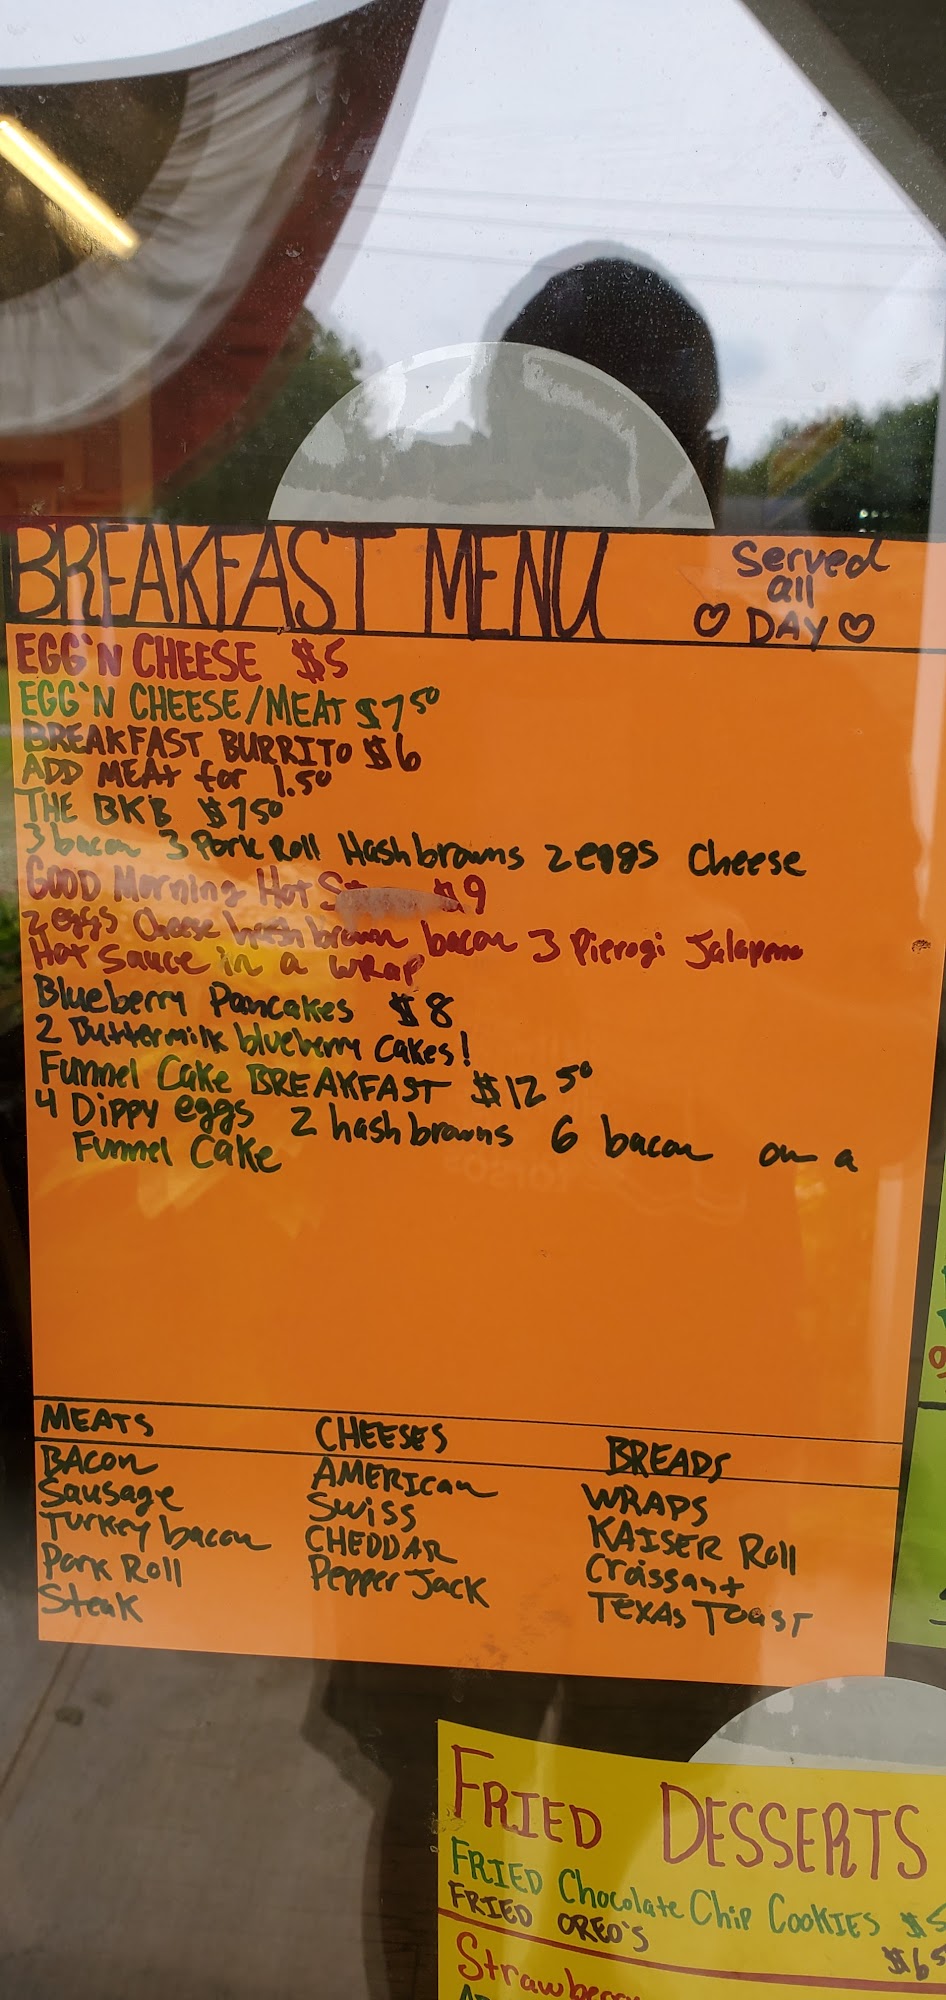 BREAKFAST MENU
Served
all
♡ DAY ♡
EGG'N CHEESE $5
EGG'N CHEESE/MEAT $7 50
BREAKFAST BURRITO $6
ADD MEAT for 1.50
THE BKB $7 50
3 bacon 3 Pork Roll Hashbrowns 2 eggs Cheese
GOOD Morning Hot $9
2 eggs Cheese hash brown bacon 3 Pierogi Jalapeno
Hot Sauce in a wrap
Blueberry Pancakes $8
2 Buttermilk blueberry cakes!
Funnel Cake BREAKFAST $12 50
4 Dippy eggs 2 hashbrowns 6 bacon on a
Funnel Cake
MEATS
BACON
Sausage
Turkey bacon
Pork Roll
Steak
CHEESES
AMERICAN
SWISS
CHEDDAR
Pepper Jack
BREADS
WRAPS
KAISER Roll
Croissant
TEXAS TOAST
FRIED DESSERTS
FRIED Chocolate Chip COOKIES $5
FRIED OREO'S $6